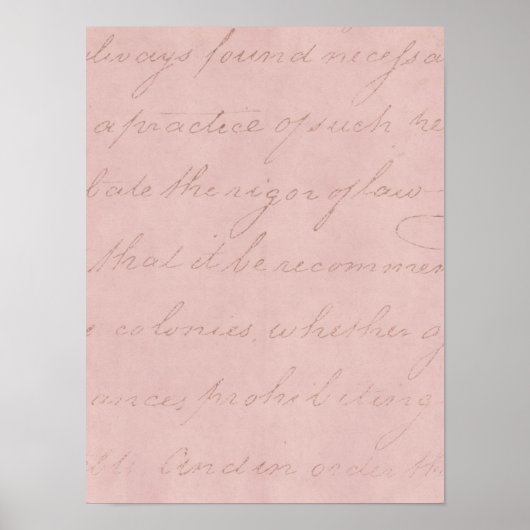 always found necessa
a practice of such re
bate the rigor of law
that it be recommen
colonies, whether g
ances prohibiting
And in order th